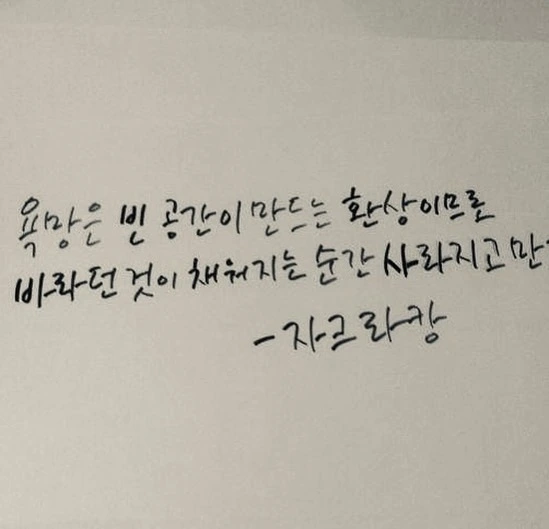 욕망은 빈 공간이 만드는 환상이므로
바라던 것이 채워지는 순간 사라지고 만
-자크라캉